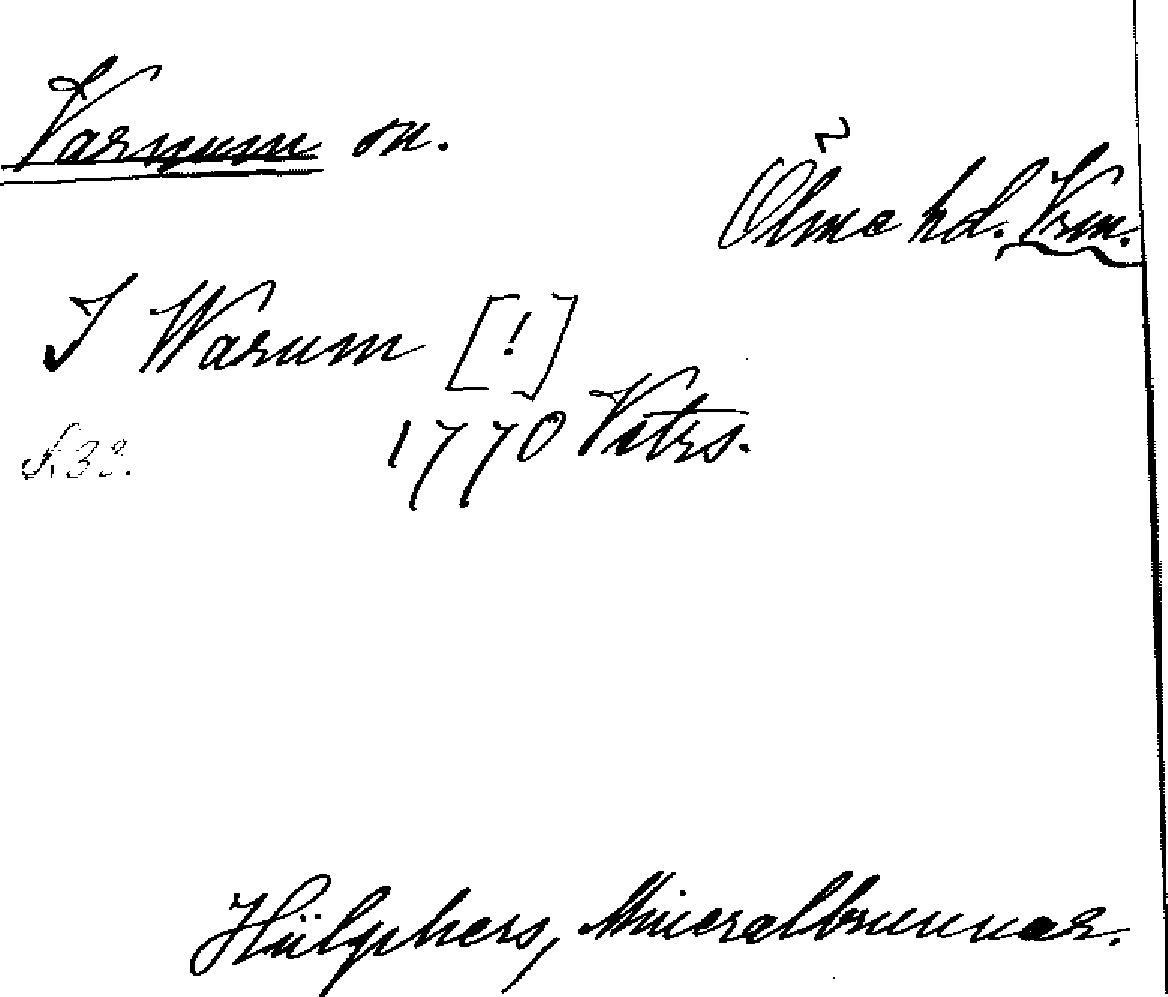 Varnum sn.
Ölme hd. Vrm.
I Warum [!]
1770 Vttrs.
f. 33.
Hülphers, Mineralbrunnar.